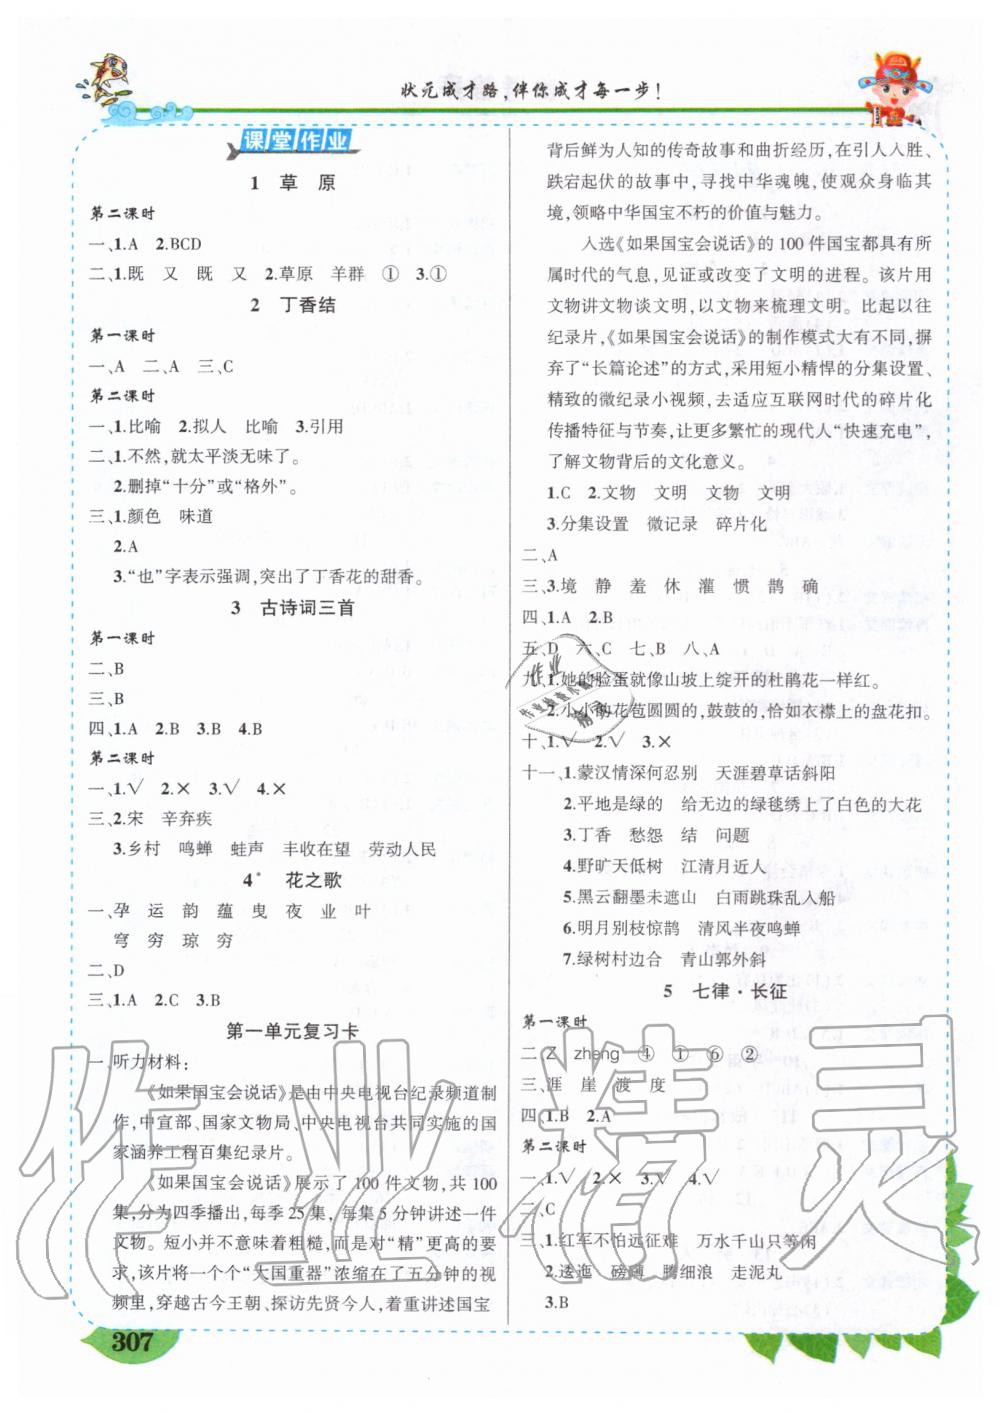 状元成才路,伴你成才每一步!
课堂作业
1 草 原
第二课时
一、1.A 2.BCD
二、1.既 又 既 又 2.草原 羊群 ① 3.①
2 丁香结
第一课时
一、A 二、A 三、C
第二课时
一、1.比喻 2.拟人 比喻 3.引用
二、1.不然,就太平淡无味了。
2.删掉“十分”或“格外”。
三、1.颜色 味道
2.A
3.“也”字表示强调,突出了丁香花的甜香。
3 古诗词三首
第一课时
二、B
三、B
四、1.A 2.B 3.B 4.A
第二课时
一、1.√ 2.× 3.√ 4.×
三、2.宋 辛弃疾
3.乡村 鸣蝉 蛙声 丰收在望 劳动人民
4* 花之歌
一、孕 运 韵 蕴 曳 夜 业 叶
穹 穷 琼 穷
二、D
三、1.A 2.C 3.B
第一单元复习卡
一、听力材料:
《如果国宝会说话》是由中央电视台纪录频道制
作,中宣部、国家文物局、中央电视台共同实施的国
家涵养工程百集纪录片。
《如果国宝会说话》展示了 100 件文物,共 100
集,分为四季播出,每季 25 集,每集 5 分钟讲述一件
文物。短小并不意味着粗糙,而是对“精”更高的要
求,该片将一个个“大国重器”浓缩在了五分钟的视
频里,穿越古今王朝、探访先贤今人,着重讲述国宝
背后鲜为人知的传奇故事和曲折经历,在引人入胜、
跌宕起伏的故事中,寻找中华魂魄,使观众身临其
境,领略中华国宝不朽的价值与魅力。
入选《如果国宝会说话》的 100 件国宝都具有所
属时代的气息,见证或改变了文明的进程。该片用
文物讲文物谈文明,以文物来梳理文明。比起以往
纪录片,《如果国宝会说话》的制作模式大有不同,摒
弃了“长篇论述”的方式,采用短小精悍的分集设置、
精致的微纪录小视频,去适应互联网时代的碎片化
传播特征与节奏,让更多繁忙的现代人“快速充电”,
了解文物背后的文化意义。
1.C 2.文物 文明 文物 文明
3.分集设置 微记录 碎片化
二、A
三、境 静 羞 休 灌 惯 鹊 确
四、1.A 2.B
五、D 六、C 七、B 八、A
九、1.她的脸蛋就像山坡上绽开的杜鹃花一样红。
2.小小的花苞圆圆的,鼓鼓的,恰如衣襟上的盘花扣。
十、1.√ 2.√ 3.×
十一、1.蒙汉情深何忍别 天涯碧草话斜阳
2.平地是绿的 给无边的绿毯绣上了白色的大花
3.丁香 愁怨 结 问题
4.野旷天低树 江清月近人
5.黑云翻墨未遮山 白雨跳珠乱入船
6.明月别枝惊鹊 清风半夜鸣蝉
7.绿树村边合 青山郭外斜
5 七律·长征
第一课时
二、Z zheng ④ ① ⑥ ②
三、涯 崖 渡 度
四、1.B 2.A
第二课时
一、1.√ 2.× 3.√ 4.√
二、C
三、1.红军不怕远征难 万水千山只等闲
2.逶迤 磅礴 腾细浪 走泥丸
3.B
307
作业精灵